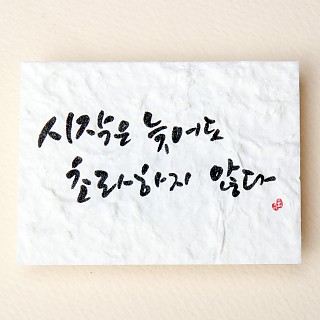 시작은 늦어도
초라하지 않다